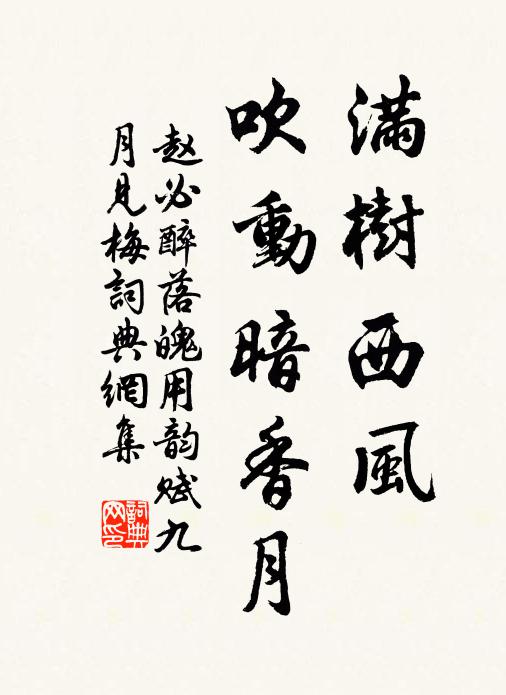 滿樹西風
吹動暗香月
赵必醉落魄用韵赋九
月见梅詞典網集
詞典
网印